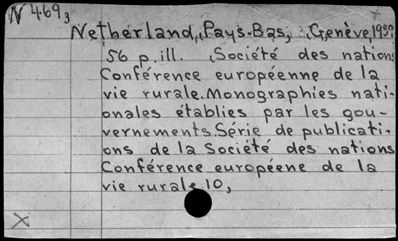 N 469,
Netherland, Pays-Bas, Genève, 1939
56 p. ill. Société des nations
Conférence européenne de la
vie rurale. Monographies nati-
onales établies par les gou-
vernements. Série de publicati-
ons de la Société des nations
Conférence européene de la
vie rurale 10,
X